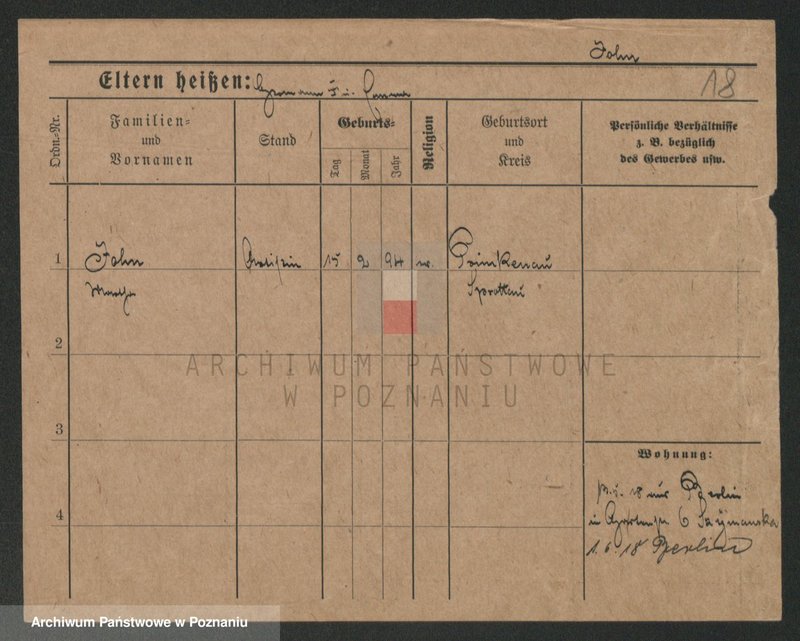 John
Eltern heißen: Hermann u.
18
Ordn.-Nr.
Familien- und Vornamen
Stand
Geburts-
Tag
Monat
Jahr
Religion
Geburtsort und Kreis
Persönliche Verhältnisse
z. B. bezüglich
des Gewerbes usw.
1 John 15 2 94 Primkenau
Martha Sprottau
2
ARCHIWUM PAŃSTWOWE
W POZNANIU
3
Wohnung:
18 aus Berlin
in 6 Szymanska
4
1.6.18 Berlin
Archiwum Państwowe w Poznaniu